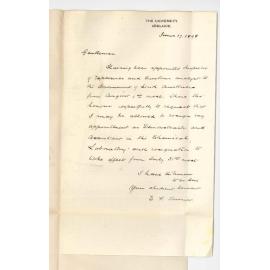 THE UNIVERSITY
ADELAIDE
June 17, 1908
Gentlemen
Having been appointed Inspector
of Explosives and Government analyst to the
Government of South Australia
from August 1st next I have the
honour respectfully to request that
I may be allowed to resign my
appointment as Demonstrator and
Assistant in the Chemical
Laboratory: such resignation to
take effect from July 31st next
I have the honour
to be Sirs
Your obedient servant